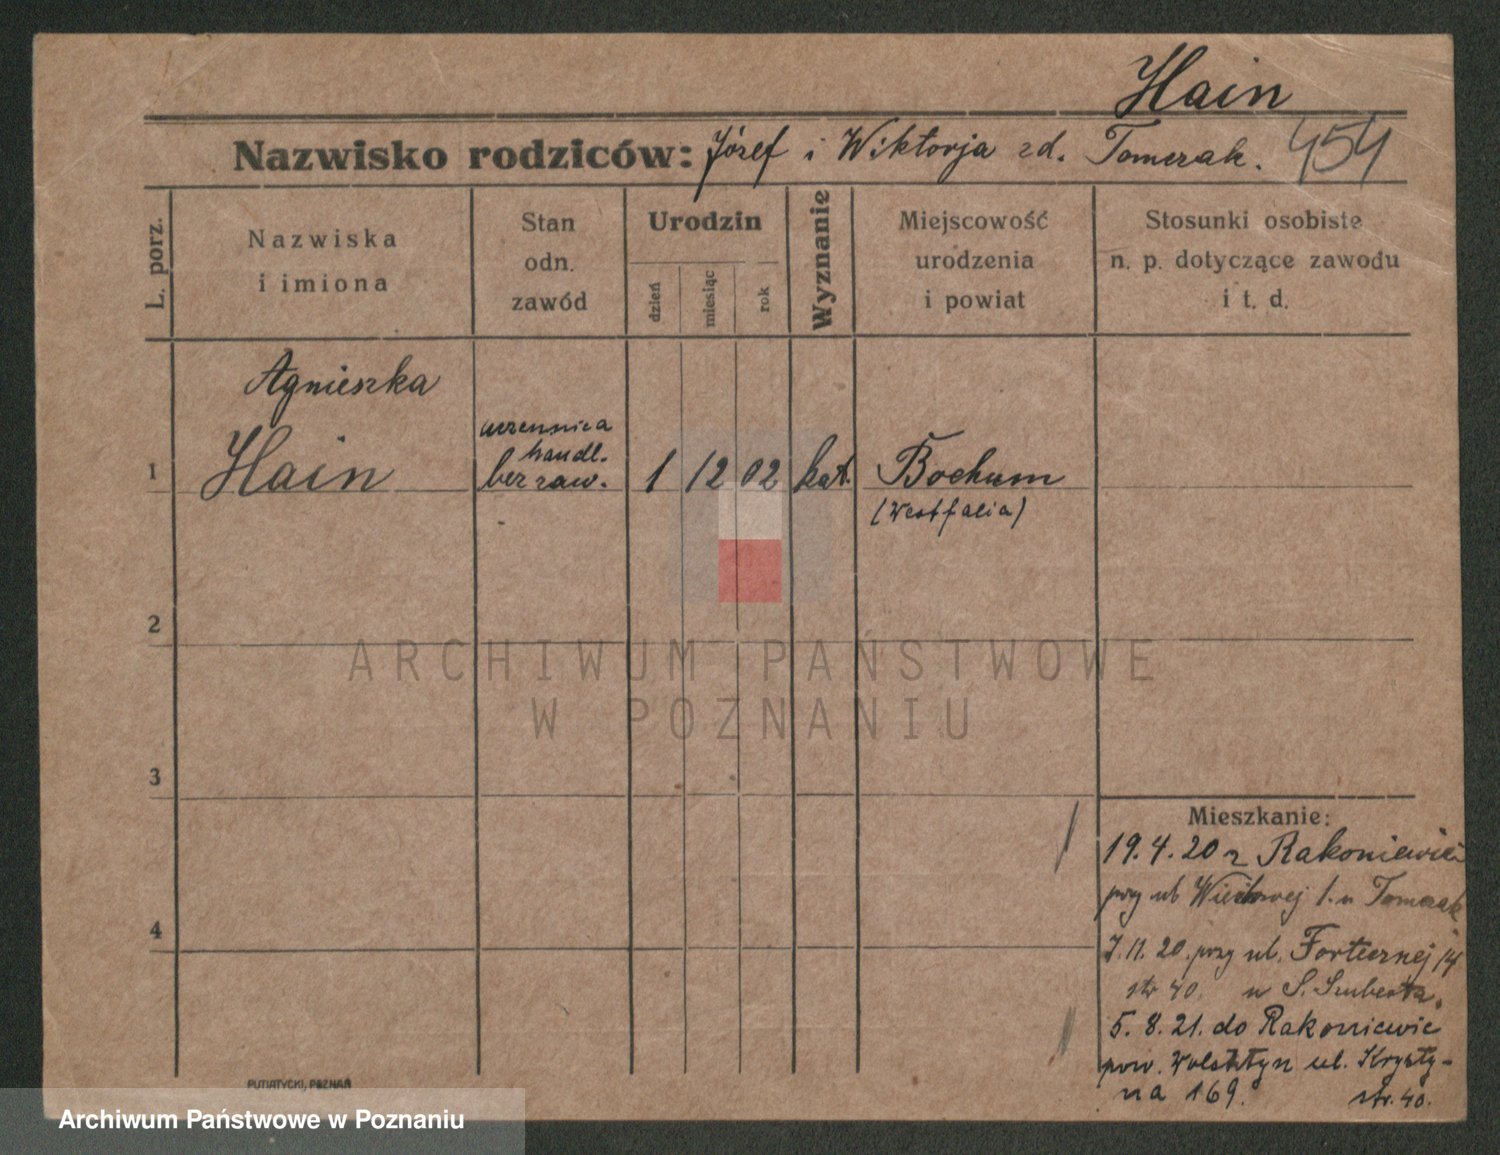 Hain
Nazwisko rodziców: Józef i Wiktorja zd. Tomczak. 454
L. porz.
Nazwiska
i imiona
Stan
odn.
zawód
Urodzin
dzień
miesiąc
rok
Wyznanie
Miejscowość
urodzenia
i powiat
Stosunki osobiste
n. p. dotyczące zawodu
i t. d.
Agnieszka
uczennica
handl.
1 Hain bez zaw. 1 12 02 kat. Bochum
(Westfalia)
2
ARCHIWUM PAŃSTWOWE
W POZNANIU
3
Mieszkanie:
19.4.20 z Rakoniewic
przy ul 1. u Tomczak
4
7.11.20. przy ul. Fortecznej 14
str 40. u S. Szuberta.
5.8.21. do Rakoniewic
pow. Wolsztyn ul. Krysty-
na 169. str. 40.
PUTIATYCKI, POZNAŃ
Archiwum Państwowe w Poznaniu